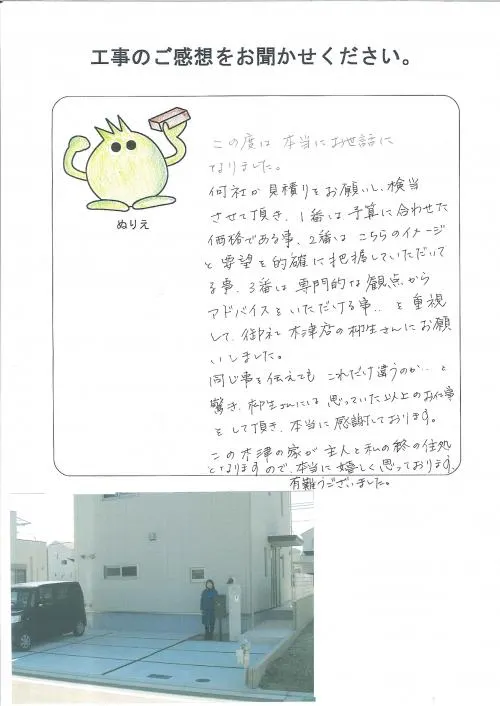 工事のご感想をお聞かせください。
ぬりえ
この度は 本当にお世話に
なりました。
何社か見積りをお願いし、検当
させて頂き、1番は予算に合わせた
価格である事、2番は こちらのイメージ
と要望を的確に把握していただいて
る事、3番は専門的な観点から
アドバイスをいただける事.. を重視
して、御社 木津店の柳生さんにお願
いしました。
同じ事を伝えても これだけ違うのか.. と
驚き、柳生さんには思っていた以上のお仕事
をして頂き、本当に感謝しております。
この木津の家が主人と私の終の住処
となりますので、本当に嬉しく思っております。
有難うございました。